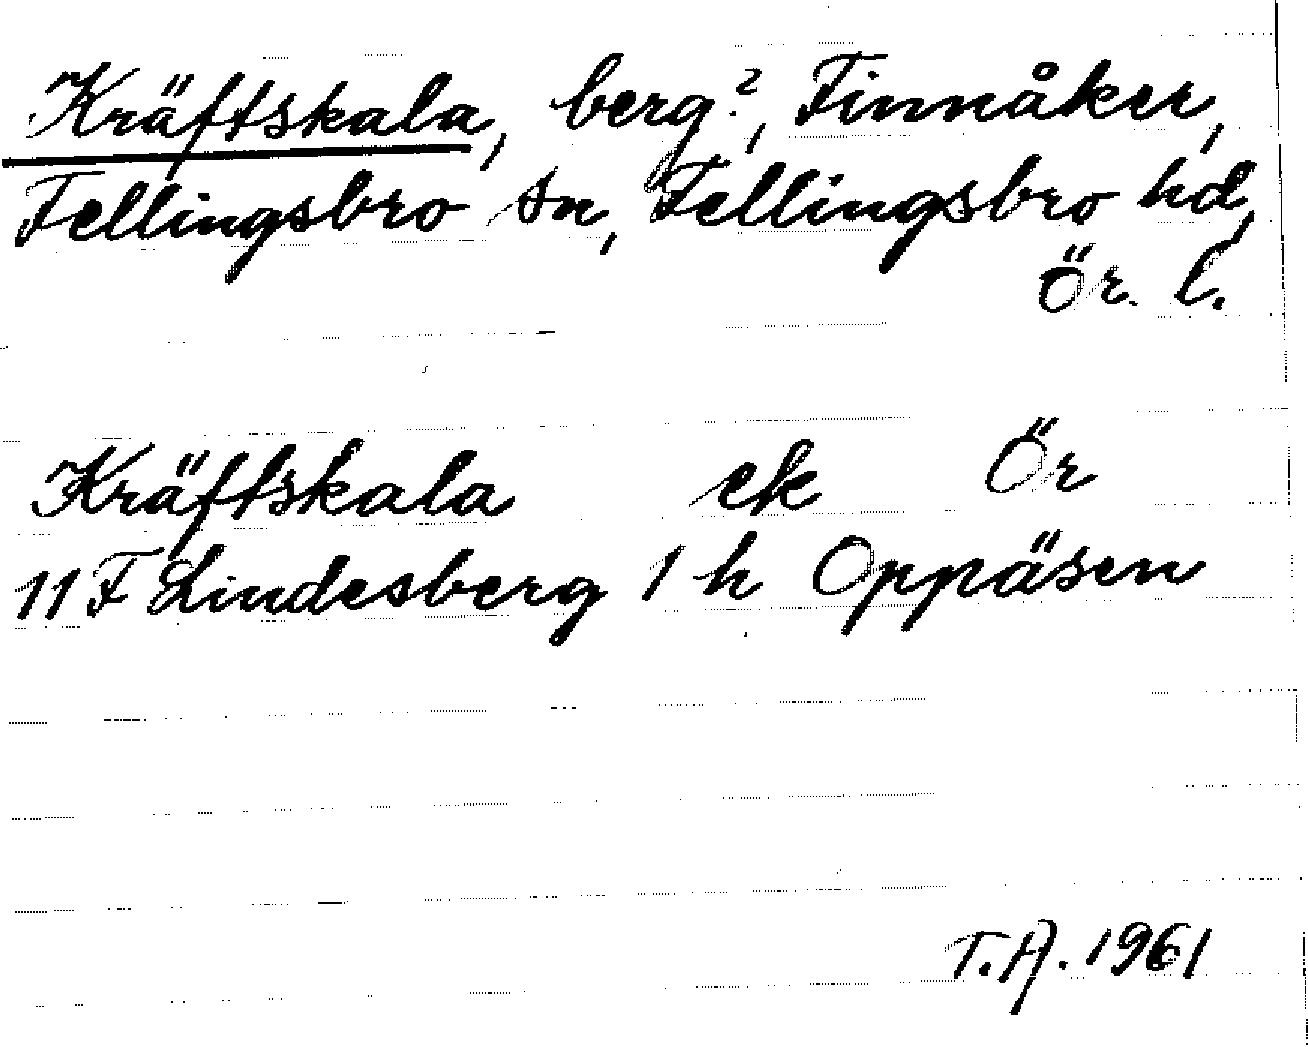 Kräftskala, berg?, Finnåker,
Fellingsbro sn, Fellingsbro hd,
Ör. l.
Kräftskala ek Ör
11 F Lindesberg 1 h Oppåsen
T.A. 1961